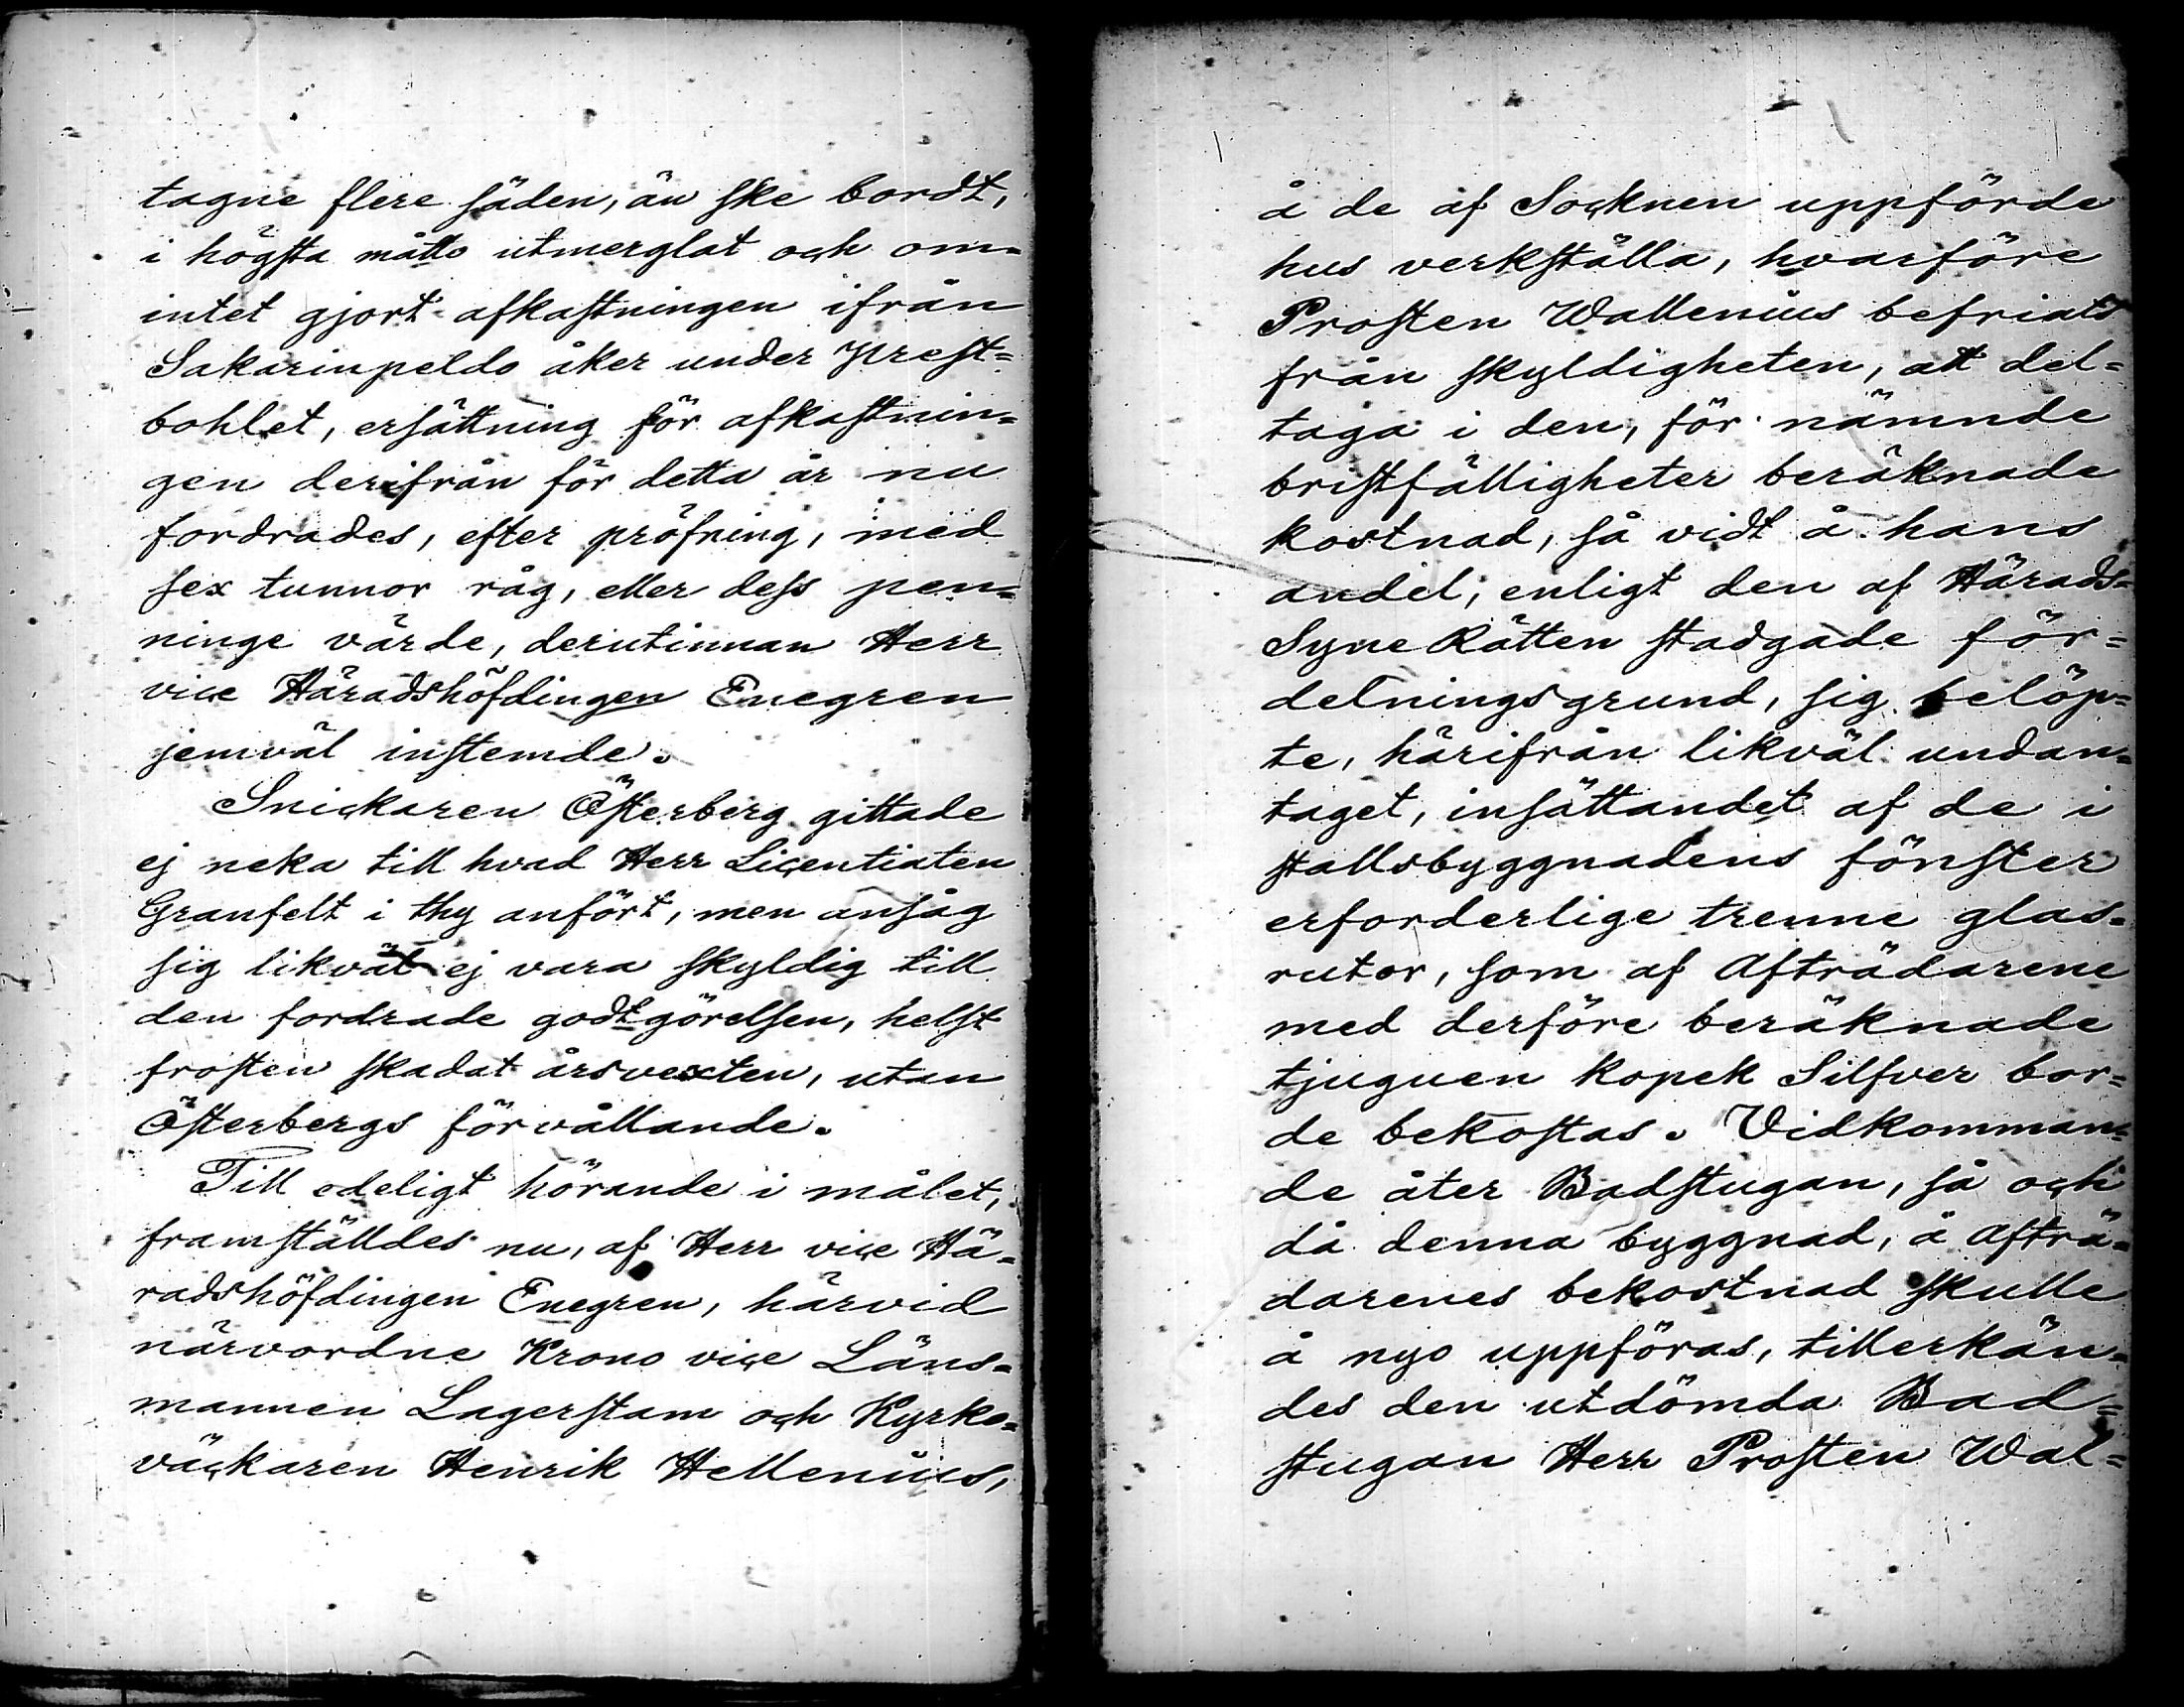 tagne flere säden, än ske bordt,
i högsta måtto utmerglat och om=
intet gjort afkastningen ifrån
Sakarinpeldo åker under Prest=
bohlet, ersättning för afkastnin=
gen derifrån för detta år nu
fordrades, efter pröfning, med
sex tunnor råg, eller dess pen=
ninge värde, derutinnan Herr
vice Häradshöfdingen Enegren
jemväl instemde.
Snickaren Österberg gittade
ej neka till hvad Herr Licentiaten
Granfelt i thy anfört, men ansåg
sig likväl ej vara skyldig till
den fordrade godtgörelsen, helst
frosten skadat årsvexten, utan
Österbergs förvållande.
Till edeligt hörande i målet,
framställdes nu, af Herr vice Hä=
radshöfdingen Enegren, härvid
närvordne Krono vice Läns=
mannen Lagerstam och Kyrko=
väckaren Henrik Hellenius,
å de af Socknen uppförde
hus verkställa, hvarföre
Prosten Wallenius befriats
från skyldigheten, att del=
taga i den, för nämnde
bristfälligheter beräknade
kostnad, så vidt å hans
andel, enligt den af Härads=
Syne Rätten stadgade för=
delningsgrund, sig belöp=
te, härifrån likväl undan=
taget, insättandet af de i
stallsbyggnadens fönster
erforderlige trenne glas=
rutor, som af Afträdarene
med derföre beräknade
tjuguen kopek Silfver bor=
de bekostas. Vidkomman=
de åter Badstugan, så och
då denna byggnad, å Afträ=
darenes bekostnad skulle
å nyo uppföras, tillerkän=
des den utdömda Bad=
stugan Herr Prosten Wal=